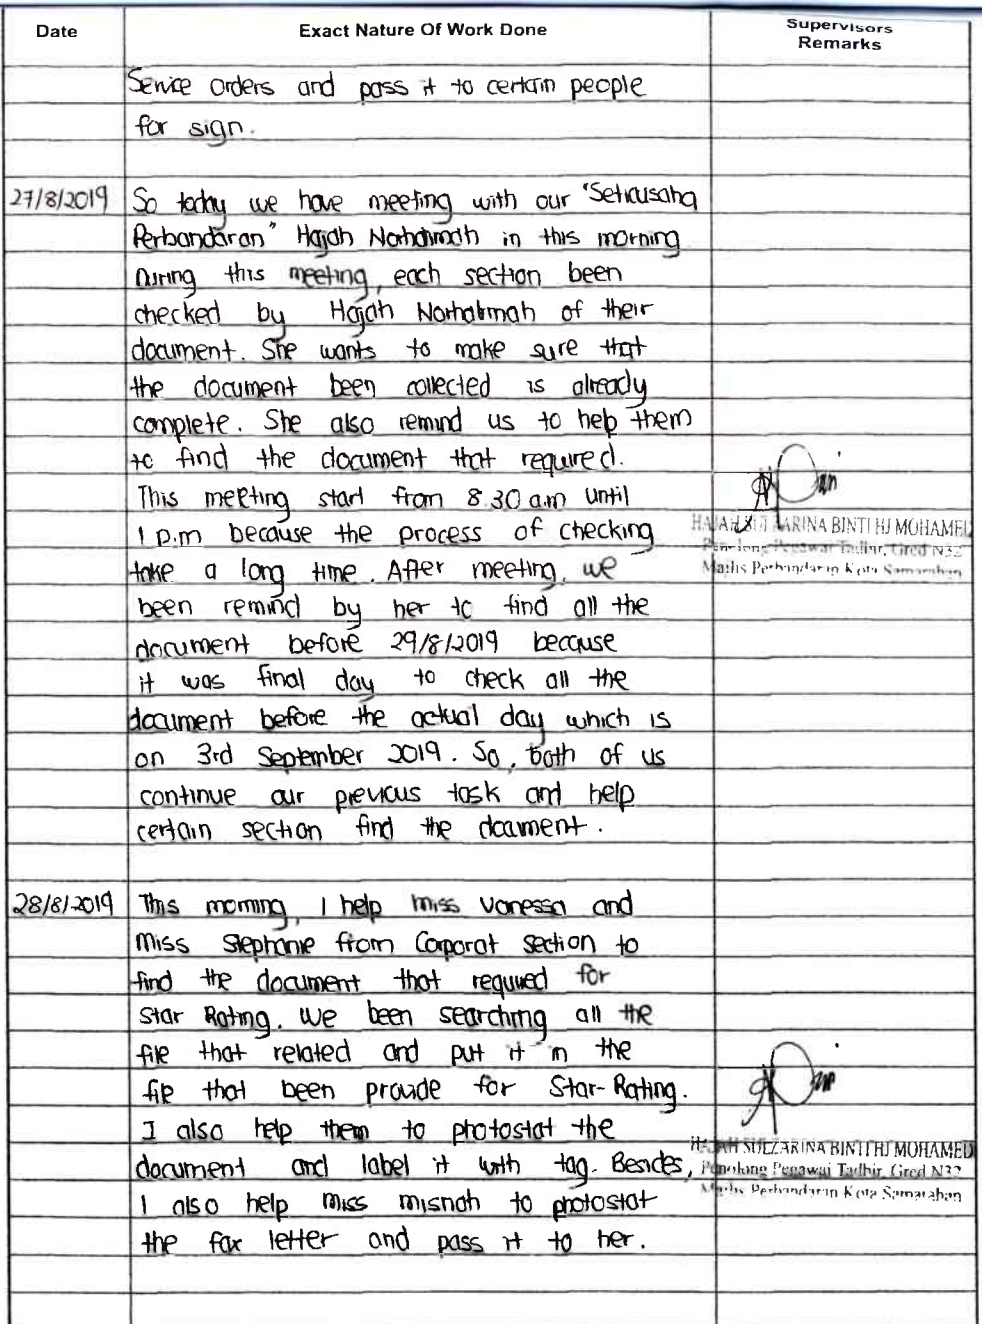 Date
Exact Nature Of Work Done
Supervisors
Remarks
Service orders and pass it to certain people
for sign.
27/8/2019
So today we have meeting with our "Setiausaha
Perbandaran" Hajah Norhalimah in this morning
During this meeting, each section been
checked by Hajah Norhalimah of their
document. She wants to make sure that
the document been collected is already
complete. She also remind us to help them
to find the document that required.
This meeting start from 8.30 a.m until
1 p.m because the process of checking
take a long time. After meeting, we
been remind by her to find all the
document before 29/8/2019 because
it was final day to check all the
document before the actual day which is
on 3rd September 2019. So, both of us
continue our previous task and help
certain section find the document.
HAJAH SULZARINA BINTI HJ MOHAMED
Penolong Pegawai Tadbir, Gred N32
Majlis Perbandaran Kota Samarahan
28/8/2019
This morning, I help miss Vanessa and
Miss Stephanie from Corporat section to
find the document that required for
Star Rating. We been searching all the
file that related and put it in the
file that been provide for Star-Rating.
I also help them to photostat the
document and label it with tag. Besides,
I also help miss misnah to photostat
the fax letter and pass it to her.
HAJAH SULZARINA BINTI HJ MOHAMED
Penolong Pegawai Tadbir, Gred N32
Majlis Perbandaran Kota Samarahan